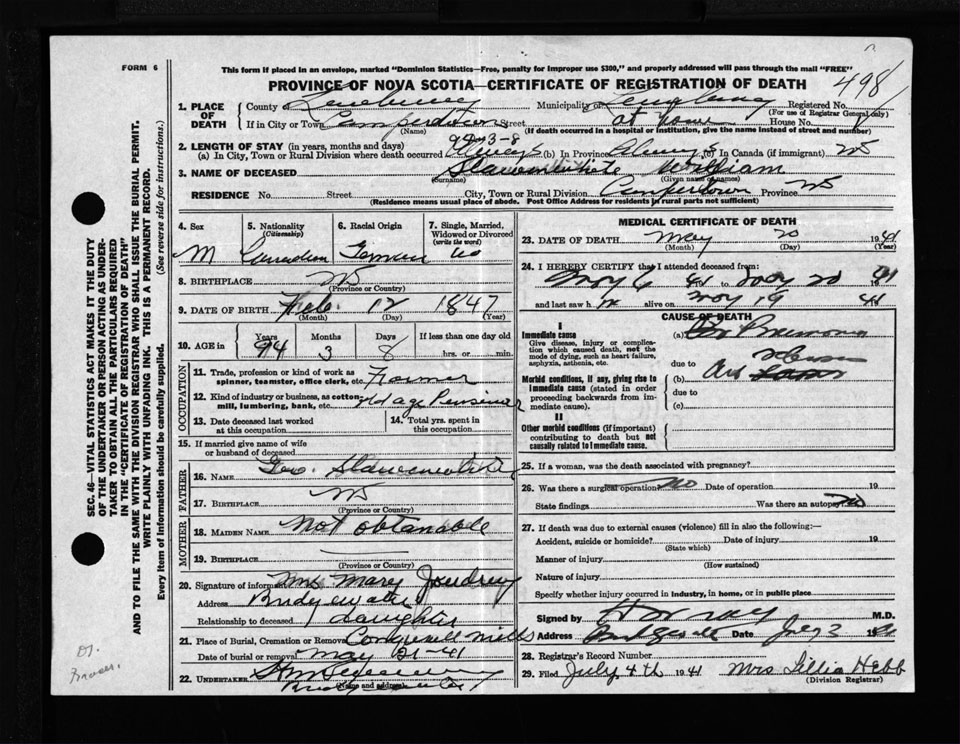 FORM 6
This form if placed in an envelope, marked "Dominion Statistics—Free, penalty for improper use $300," and properly addressed will pass through the mail "FREE"
PROVINCE OF NOVA SCOTIA—CERTIFICATE OF REGISTRATION OF DEATH
498
1. PLACE OF DEATH
County Lunenburg Municipality of Lunenburg Registered No.
(For use of Registrar General only)
If in City or Town Camperdown Street at home House No.
(Name) (If death occurred in a hospital or institution, give the name instead of street and number)
94-3-8
2. LENGTH OF STAY (in years, months and days)
(a) In City, Town or Rural Division where death occurred Always (b) In Province Always (c) In Canada (if immigrant) NS
3. NAME OF DECEASED Slawenwhite William
(Surname) (Given name or names)
RESIDENCE No. Street City, Town or Rural Division Province NS
(Residence means usual place of abode. Post Office Address for residents in rural parts not sufficient)
4. Sex M
5. Nationality (Citizenship) Canadian
6. Racial Origin German
7. Single, Married, Widowed or Divorced (write the word)
8. BIRTHPLACE NS
(Province or Country)
9. DATE OF BIRTH Feb. 12 1847
(Month) (Day) (Year)
10. AGE in Years 94 Months 3 Days 8 If less than one day old hrs. or min.
OCCUPATION
11. Trade, profession or kind of work as spinner, teamster, office clerk, etc. Farmer
12. Kind of industry or business, as cotton-mill, lumbering, bank, etc. old age Pensioner
13. Date deceased last worked at this occupation
14. Total yrs. spent in this occupation
15. If married give name of wife or husband of deceased
FATHER
16. NAME Geo. Slawenwhite
17. BIRTHPLACE NS
(Province or Country)
MOTHER
18. MAIDEN NAME Not obtanable
19. BIRTHPLACE
(Province or Country)
20. Signature of informant Mrs Mary Joudrey
Address Bridgewater
Relationship to deceased daughter
21. Place of Burial, Cremation or Removal Mills
Date of burial or removal May 21-41
22. UNDERTAKER
(Name and address) Bridgewater
MEDICAL CERTIFICATE OF DEATH
23. DATE OF DEATH May 20 1941
(Month) (Day) (Year)
24. I HEREBY CERTIFY that I attended deceased from:
May 6 41 to May 20 41
and last saw h alive on May 19 41
CAUSE OF DEATH
I
Immediate cause
Give disease, injury or complication which caused death, not the mode of dying, such as heart failure, asphyxia, asthenia, etc.
(a) Br Pneumonia
due to
Morbid conditions, if any, giving rise to immediate cause (stated in order proceeding backwards from immediate cause).
(b)
due to
(c)
II
Other morbid conditions (if important) contributing to death but not causally related to immediate cause.
25. If a woman, was the death associated with pregnancy?
26. Was there a surgical operation no Date of operation 19
State findings Was there an autopsy no
27. If death was due to external causes (violence) fill in also the following:—
Accident, suicide or homicide? Date of injury 19
(State which)
Manner of injury
(How sustained)
Nature of injury
Specify whether injury occurred in industry, in home, or in public place
Signed by M.D.
Address Date July 3 1941
28. Registrar's Record Number
29. Filed July 4th 1941 Mrs Lillia Hebb
(Division Registrar)
SEC. 46—VITAL STATISTICS ACT MAKES IT THE DUTY
OF THE UNDERTAKER OR PERSON ACTING AS UNDER-
TAKER TO OBTAIN ALL THE PARTICULARS REQUIRED
IN THE "CERTIFICATE OF REGISTRATION OF DEATH"
AND TO FILE THE SAME WITH THE DIVISION REGISTRAR WHO SHALL ISSUE THE BURIAL PERMIT.
WRITE PLAINLY WITH UNFADING INK. THIS IS A PERMANENT RECORD.
Every item of Information should be carefully supplied. (See reverse side for instructions.)